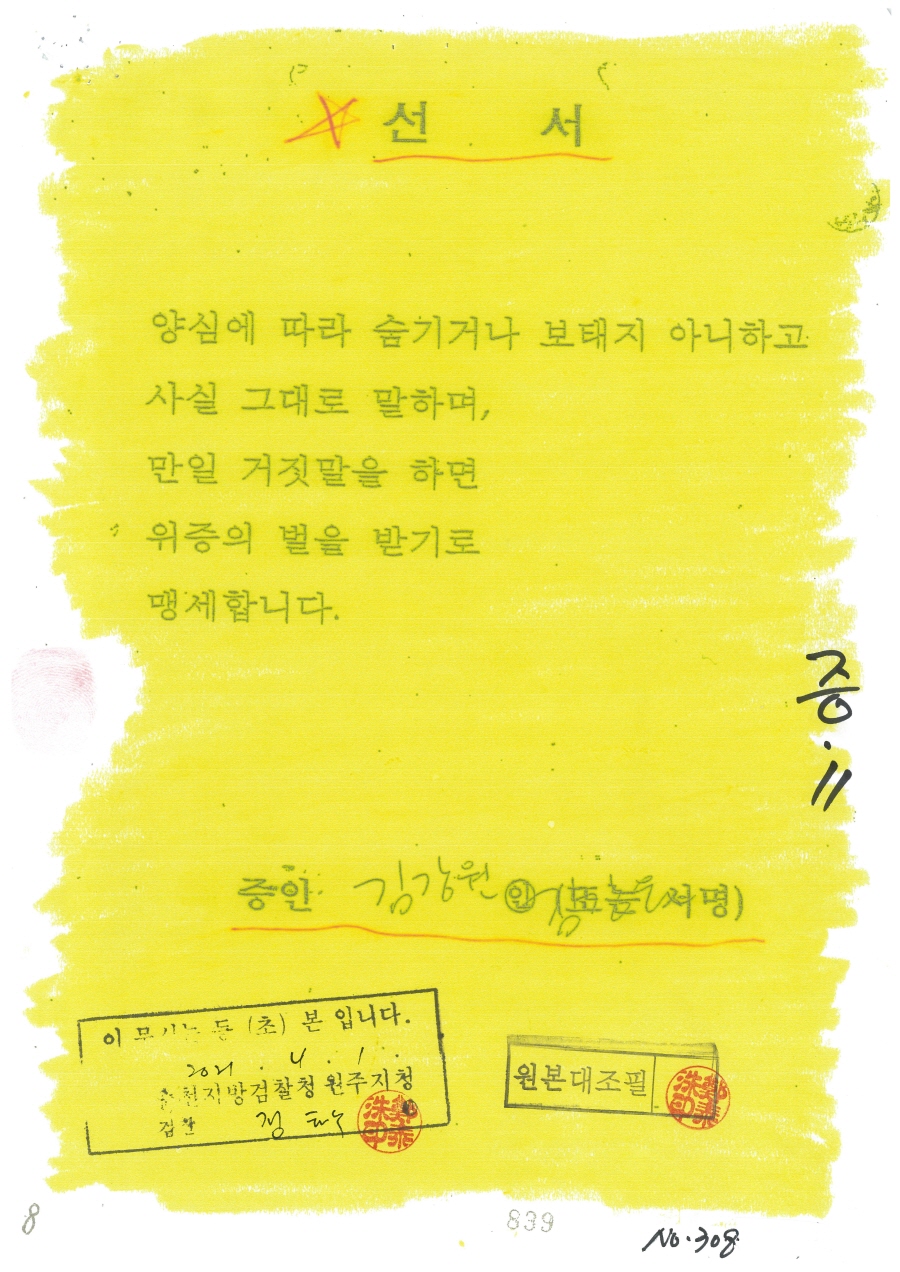 선 서
양심에 따라 숨기거나 보태지 아니하고
사실 그대로 말하며,
만일 거짓말을 하면
위증의 벌을 받기로
맹세합니다.
증.11
증인 김강원 인 서명)
이 등 (초) 본 입니다.
2021 . 4 . 1 .
춘천지방검찰청 원주지청
정
원본대조필
8
839
No.308